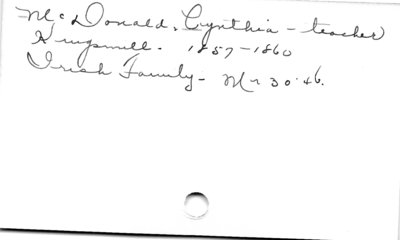 McDonald, Cynthia - teacher
Kingsmill - 1857-1860
Irish Family - Mr 30.46.